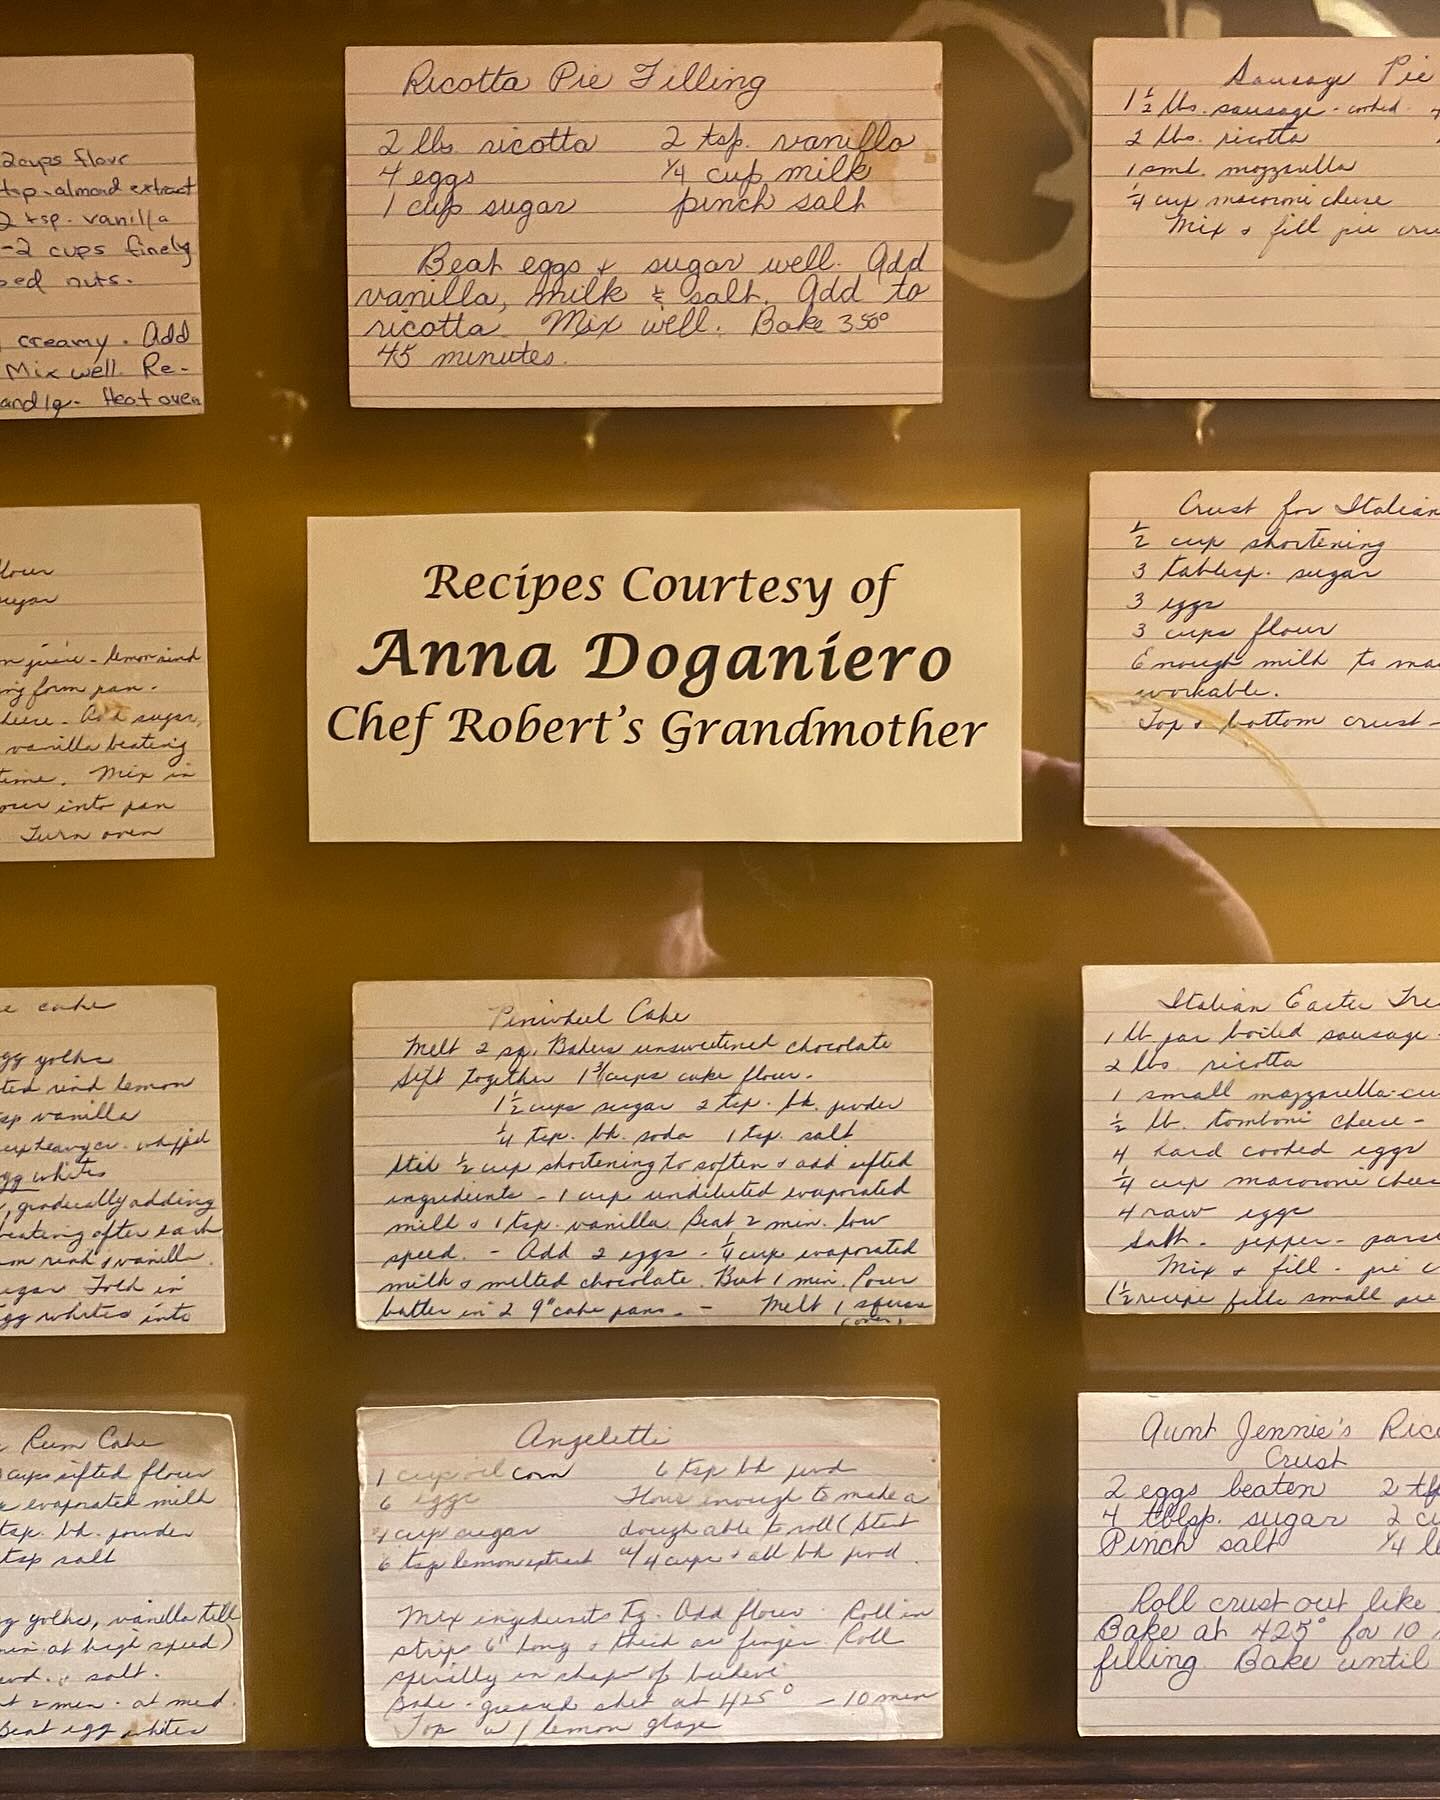 2 cups flour
tsp. almond extract
2 tsp. vanilla
-2 cups finely
ped nuts.
creamy. Add
Mix well. Re-
Heat oven
Ricotta Pie Filling
2 lbs ricotta 2 tsp. vanilla
4 eggs 1/4 cup milk
1 cup sugar pinch salt
Beat eggs & sugar well. Add
vanilla, milk & salt. Add to
ricotta. Mix well. Bake 350°
45 minutes.
Sausage Pie
1 1/2 lbs. sausage - cooked
2 lbs. ricotta
1 sml. mozzarella
1/4 cup macoroni cheese
Mix & fill pie cru
flour
sugar
juice - lemon rind
ing form pan.
cheese. Add sugar,
vanilla beating
time. Mix in
into pan
Turn oven
Recipes Courtesy of
Anna Doganiero
Chef Robert's Grandmother
Crust for Italian
1/2 cup shortening
3 tablesp. sugar
3 eggs
3 cups flour
Enough milk to ma
workable.
Top & bottom crust -
cake
egg yolks
ted rind lemon
tsp vanilla
whipped
egg whites
, gradually adding
beating after each
rind & vanilla.
sugar Fold in
egg whites into
Pinwheel Cake
Melt 2 sq. Bakers unsweetened chocolate
Sift together 1 3/4 cups cake flour.
1 1/2 cups sugar 2 tsp. bk. powder
1/4 tsp. bk. soda 1 tsp. salt
Stir 1/2 cup shortening to soften & add sifted
ingredients - 1 cup undiluted evaporated
milk & 1 tsp. vanilla Beat 2 min. low
speed. - Add 2 eggs - 1/4 cup evaporated
milk & melted chocolate. Beat 1 min. Pour
batter in 2 9" cake pans. - Melt 1 square
(over)
Italian Easter Tre
1 lb jar boiled sausage -
2 lbs ricotta
1 small mozzarella - cu
1/2 lb. tomboni cheese -
4 hard cooked eggs
1/4 cup macoroni chees
4 raw eggs
salt - pepper - pars
Mix & fill - pie c
1/2 recipe fills small pie
Rum Cake
cups sifted flour
evaporated milk
tsp. bk. powder
tsp salt
egg yolks, vanilla till
min at high speed)
& salt.
2 min. at med.
Beat egg whites
Angeletti
1 cup oil corn 6 tsp bk powd
6 eggs Flour enough to make a
1 cup sugar dough able to roll (Start
6 tsp lemon extract w/4 cups & all bk powd.
Mix ingredients Add flour. Roll in
strips 6" long & thick as finger. Roll
spirally in shape of
Bake - greased sheet at 425° - 10 min
Top w/ lemon glaze
Aunt Jennie's Rico
Crust
2 eggs beaten 2
4 tblsp. sugar 2 cu
Pinch salt 1/4
Roll crust out like
Bake at 425° for 10
filling. Bake until